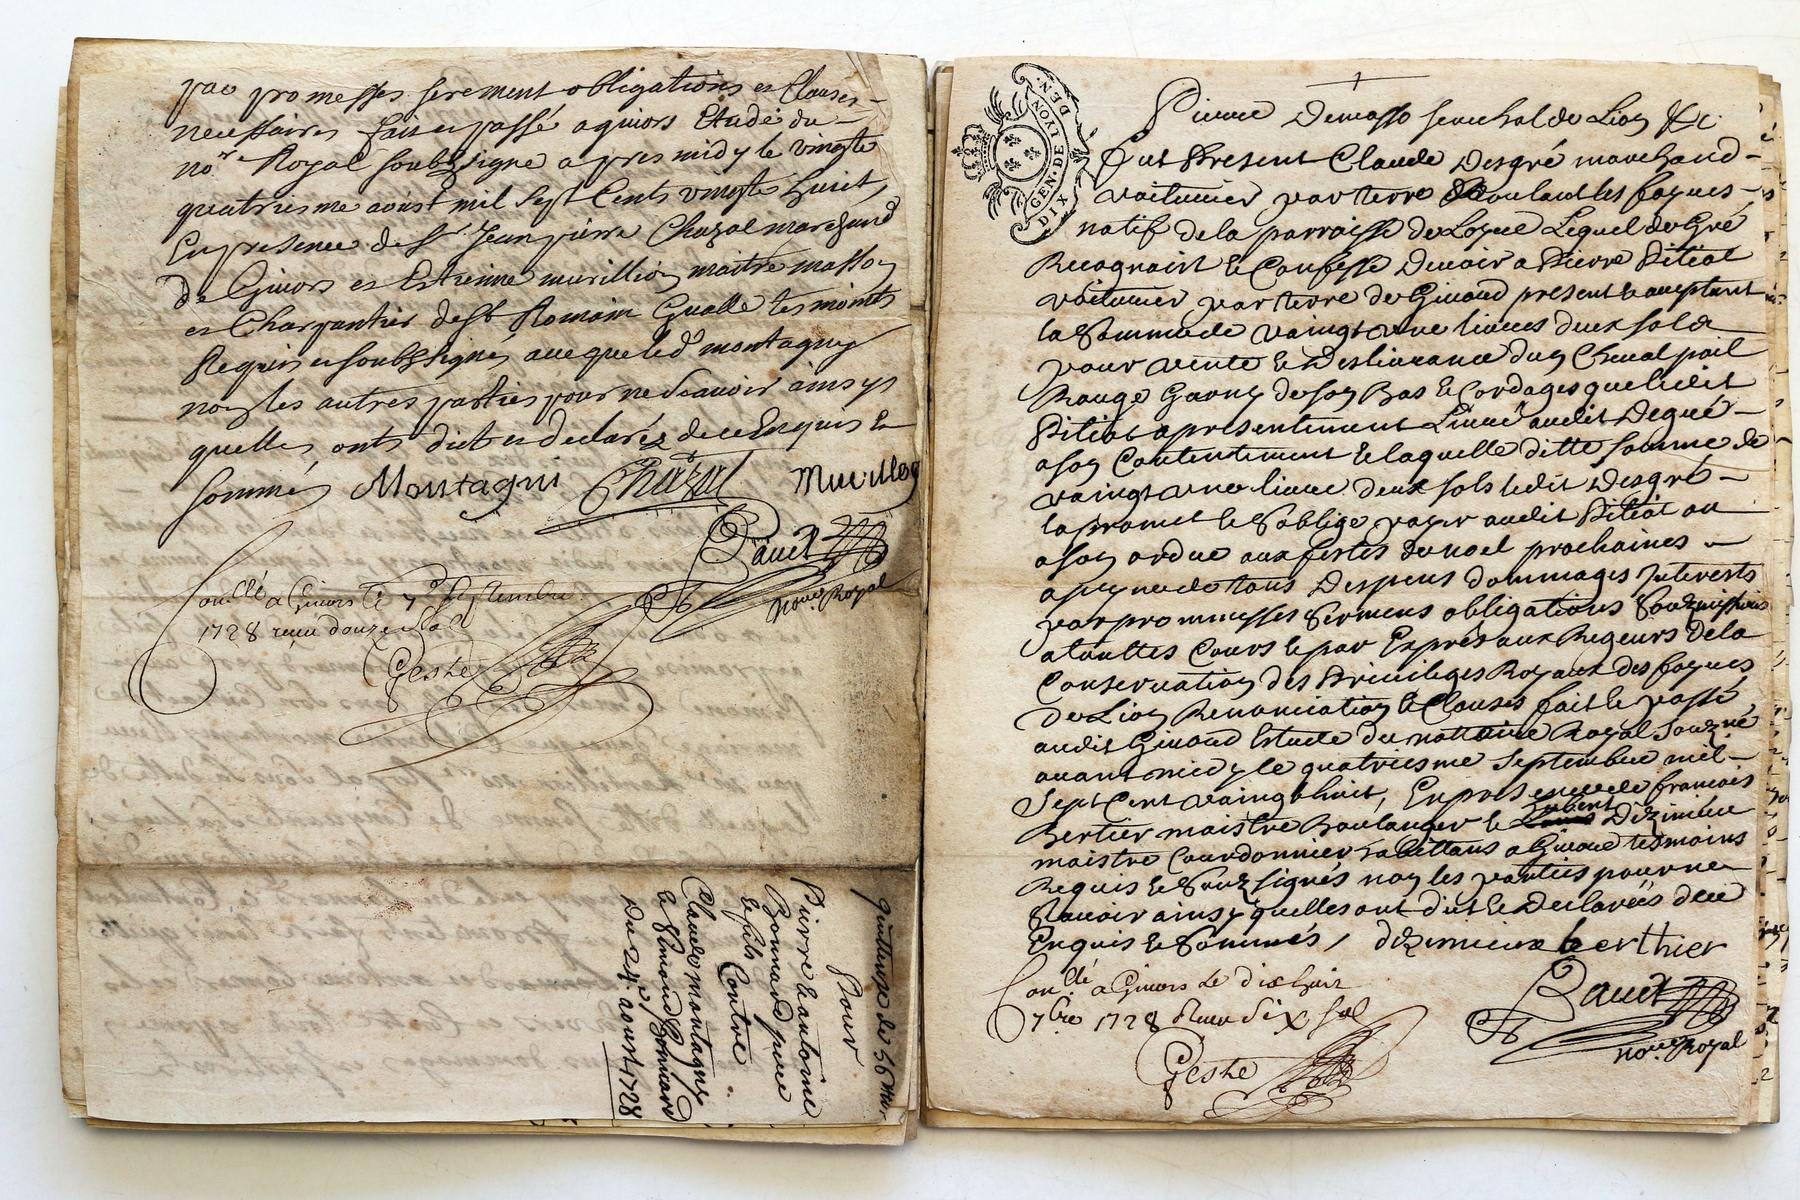 par promesses serement obligations et Clauses
necessaires fait et passé a givors Etude du
no.re Royal soubsigne apres midy le vingte
quatriesme aoust mil sept Cents vingte huict,
En presence de Sr. Jean pierre Chazal marchand
de Givors et Estienne murillion maitre masson
et Charpentier de St Romain tesmoints
Requis et soubssignés, avecque led montagny
non les autres parties pour ne scavoir ainsy
quelles onts dict et declaréz de ce Enquis et
sommés Montagni Chazal Murillon
Bavet
nore Royal
Con.llé a Givors le 7e septembre
1728 receu douze sol
Geste
quittance de 56
Pour
Pierre et antoine
Bonnard pere
et fils Contre
Claude montagny
et Simond Bonnard
Du 24e aoust 1728
GEN. DE LYON
DIX DEN.
Pierre Demasso seneschal de Lion &c
Fut Present Claude Desgré marchand
voiturier par terre Roulant les foyues
natif de la parroisse de Loyue Lequel de Gré
Recognoist et Confesse Devoir a Pierre Pitiot
voiturier par terre de Givord present et aceptant
la Somme de vaingt une livres deux sols
pour vente et Deslivrance dun Cheval poil
Rouge Garny de son Bas et Cordages que ledit
Pitiot a presentement Livré audit Degré
a son Contentement et laquelle ditte somme de
vaingt une livre deux sols ledit Desgré
la promet et soblige payer audit Pitiot ou
a son ordre aux festes de noel prochaines
a peyne de tous Despens dommages Interests
par prommesses sermens obligations Soubmissions
a touttes Cours et par Exprés aux Rigeurs de la
Conservation des Privileges Royaux des foyres
de Lion Renonciation et Clauses fait et passé
audit Givord Estude du nottaire Royal Souzné
avant midy le quatriesme Septembre mil
Sept Cent vaingt huit, En presence de francois
Bertier maistre Boulanger et Dezimieu
maistre Courdonnier habittans a Givord tesmoins
Requis et Souzsignés non les parties pour ne
Scavoir ainsy quelles ont dit et Declarées de ce
Enquis et Sommés, dezimieux berthier
Con.llé a Givors le dix huit
7bre 1728 Receu Six sol
Bavet
nore Royal
Geste